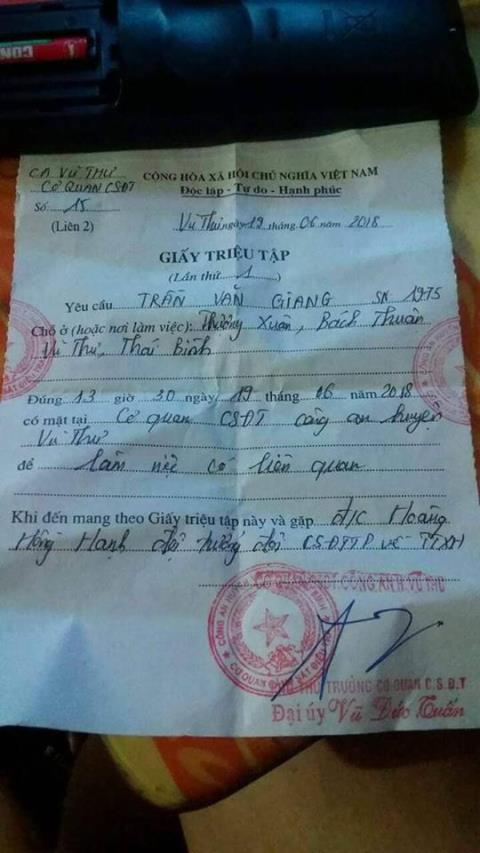 CA VŨ THƯ
CƠ QUAN CSĐT
CỘNG HÒA XÃ HỘI CHỦ NGHĨA VIỆT NAM
Độc lập - Tự do - Hạnh phúc
Số 15
(Liên 2)
Vũ Thư ngày 19 tháng 06 năm 2018
GIẤY TRIỆU TẬP
(Lần thứ 1)
Yêu cầu TRẦN VĂN GIANG SN 1975
Chỗ ở (hoặc nơi làm việc): Thượng Xuân, Bách Thuận
Vũ Thư, Thái Bình
Đúng 13 giờ 30 ngày 19 tháng 06 năm 2018
có mặt tại Cơ quan CSĐT công an huyện
Vũ Thư
để làm việc có liên quan
Khi đến mang theo Giấy triệu tập này và gặp đ/c Hoàng
Hồng Hạnh đội trưởng đội CSĐTTP về TTXH
CƠ QUAN CSĐT CÔNG AN H VŨ THƯ
PHÓ THỦ TRƯỞNG CƠ QUAN C.S.Đ.T
Đại úy Vũ Đức Tuấn
CONO